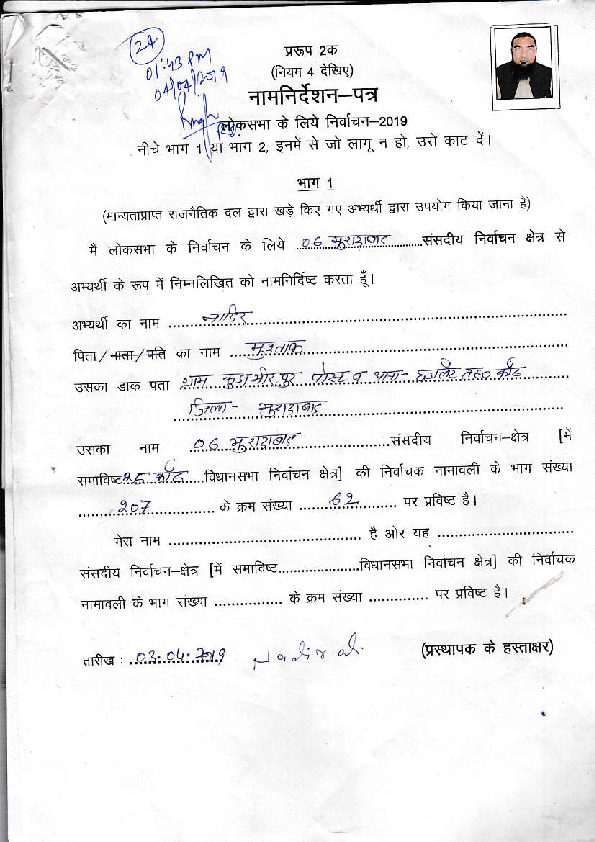 24
01:43 PM
04/04/2019
प्ररूप 2क
(नियम 4 देखिए)
नामनिर्देशन–पत्र
लोकसभा के लिये निर्वाचन–2019
नीचे भाग 1 या भाग 2, इनमें से जो लागू न हो, उसे काट दें।
भाग 1
(मान्यताप्राप्त राजनैतिक दल द्वारा खड़े किए गए अभ्यर्थी द्वारा उपयोग किया जाना है)
मै लोकसभा के निर्वाचन के लिये ..06 मुरादाबाद..........संसदीय निर्वाचन क्षेत्र से
अभ्यर्थी के रूप में निम्नलिखित को नामनिर्दिष्ट करता हूँ।
अभ्यर्थी का नाम ........नादिर........
पिता/माता/पति का नाम ........मुश्ताक........
उसका डाक पता ग्राम पोस्ट व थाना- छजलैट तह० कांठ
जिला- मुरादाबाद
उसका नाम ..06 मुरादाबाद..........संसदीय निर्वाचन–क्षेत्र [में
समाविष्ट 25 कांठ...विधानसभा निर्वाचन क्षेत्र] की निर्वाचक नामावली के भाग संख्या
........207........ के क्रम संख्या .......62....... पर प्रविष्ट है।
मेरा नाम ........................................ है और यह ............................
संसदीय निर्वाचन–क्षेत्र [में समाविष्ट....................विधानसभा निर्वाचन क्षेत्र] की निर्वाचक
नामावली के भाग संख्या ............... के क्रम संख्या ............. पर प्रविष्ट है।
तारीख : .03.04.2019 (प्रस्थापक के हस्ताक्षर)